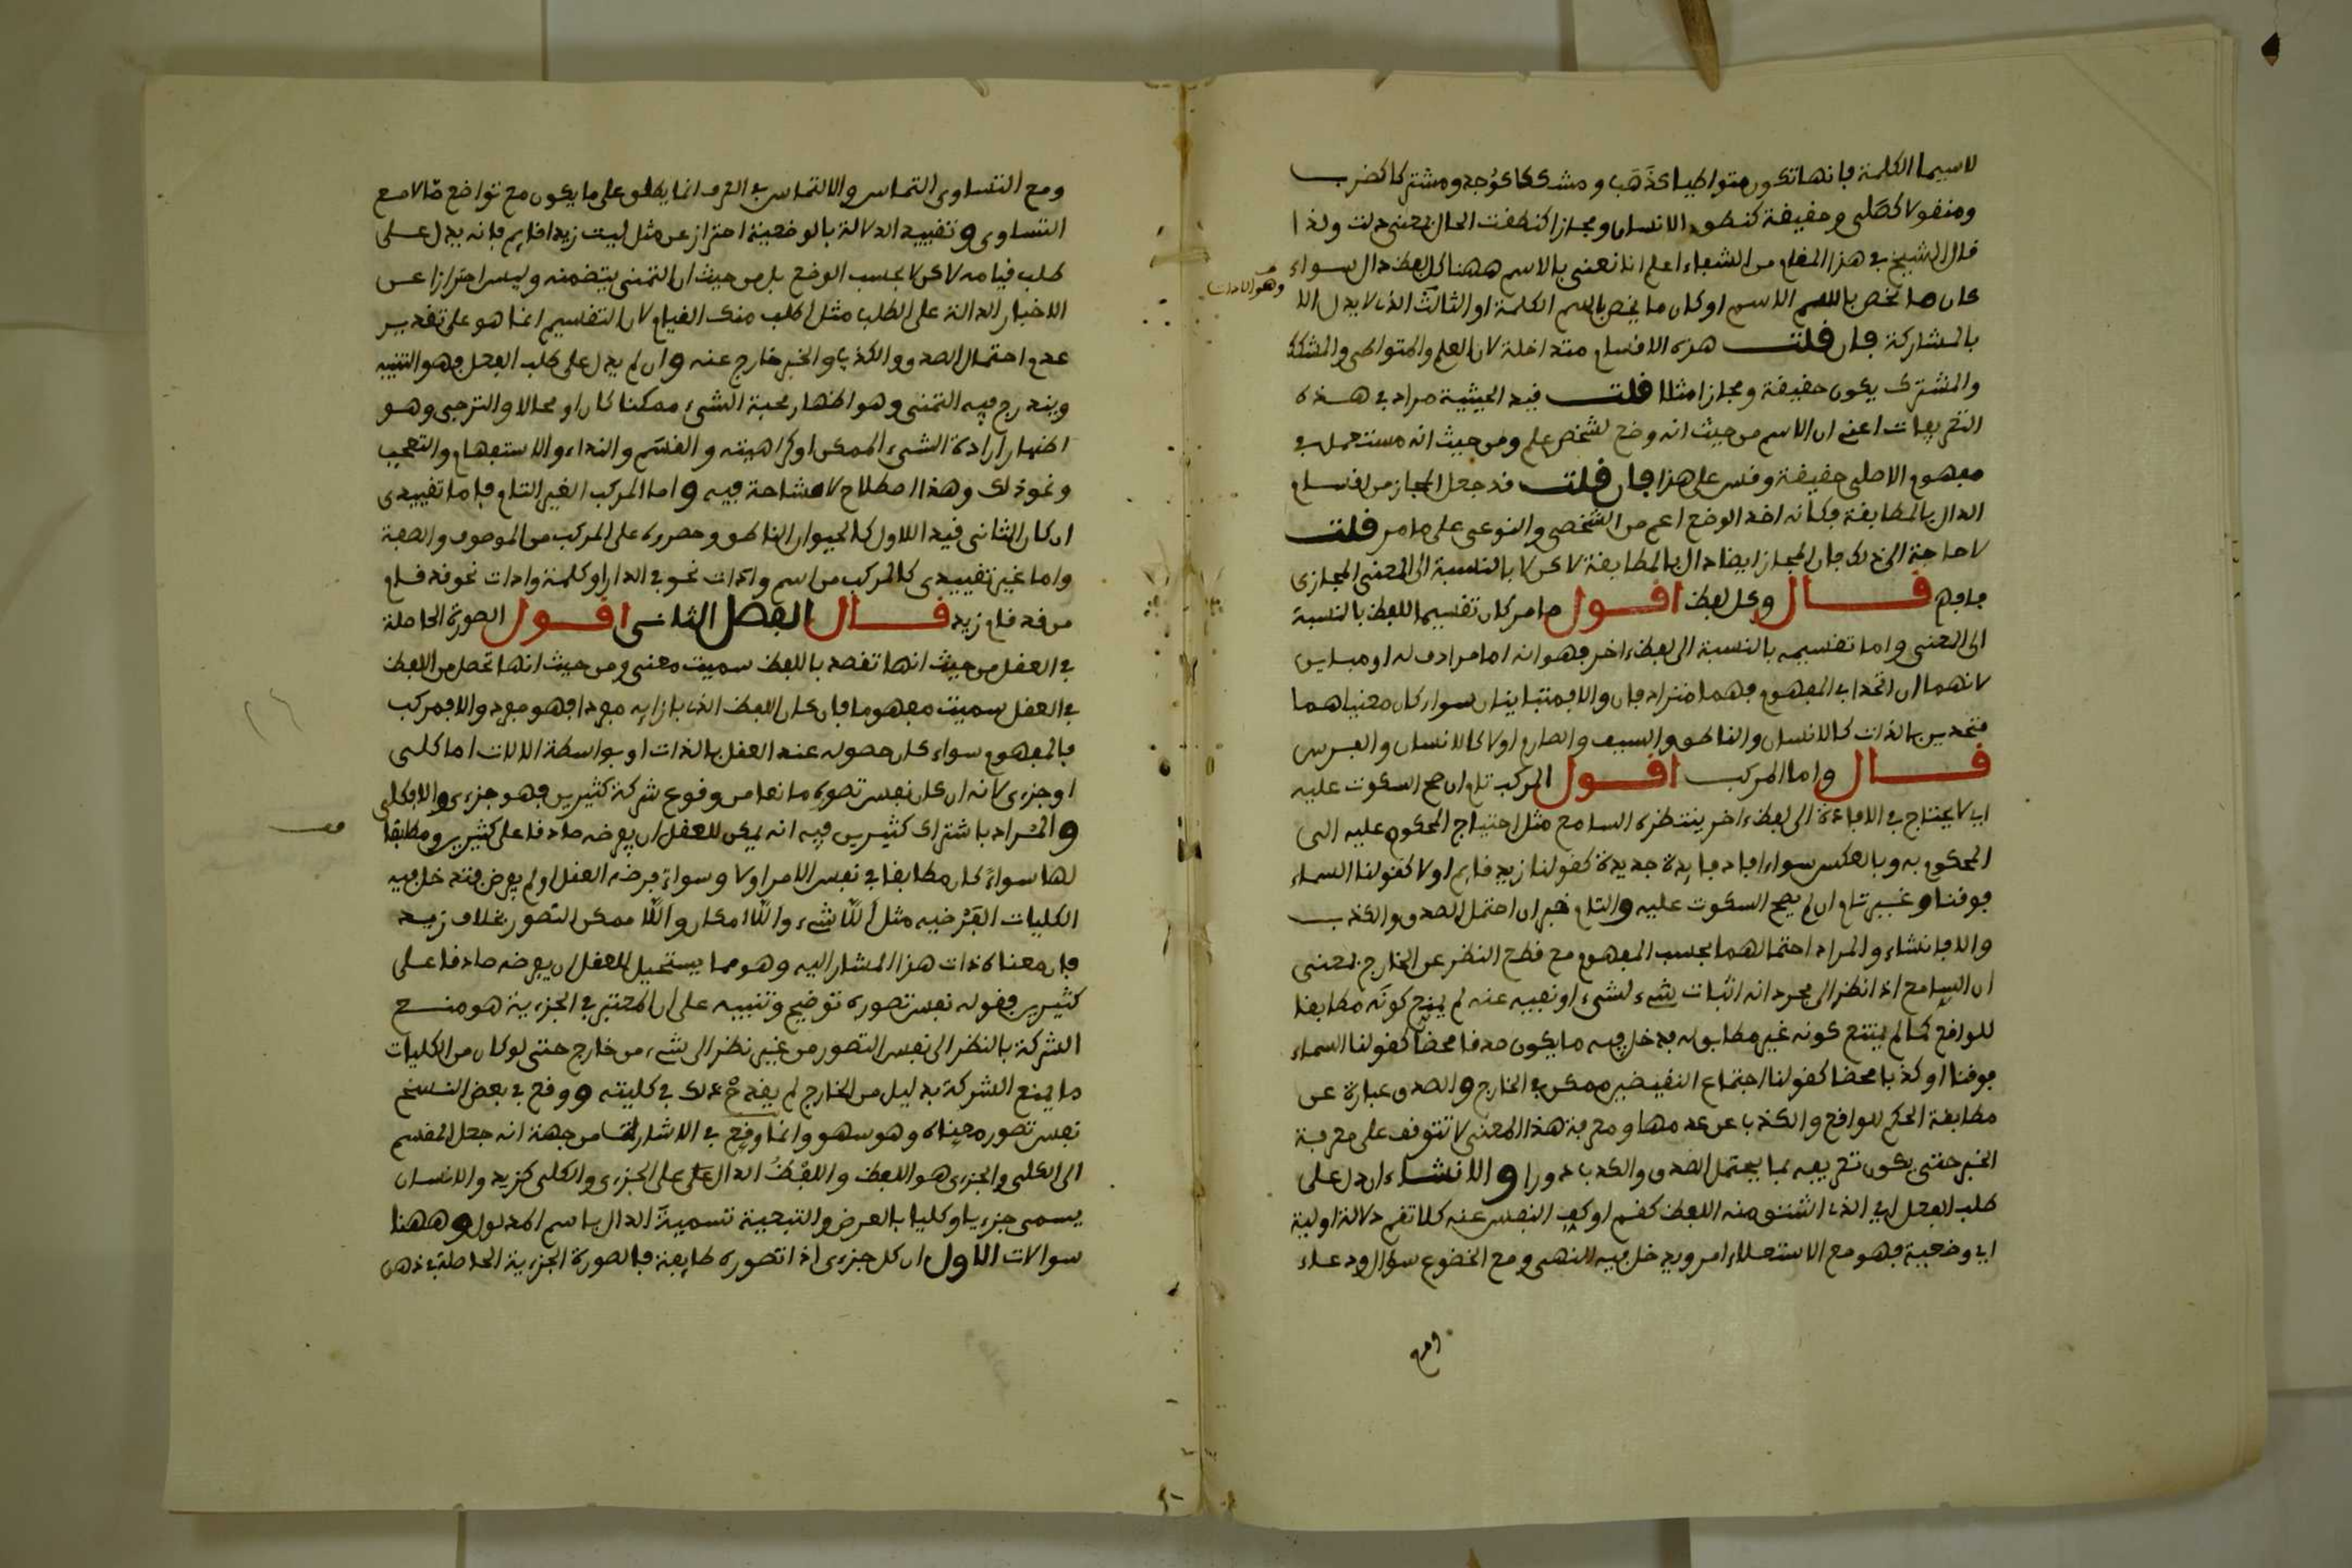 لاسيما الكلمة فانها تكون متواطيا كذهب ومشككا كوجد ومشتركا كضرب
ومنقولا كصلى وحقيقة كنطق الانسان ومجازا كنطقت الحال بمعنى دلت ولذا
قال الشيخ في هذا المقام من الشفاء اعلم انا نعنى بالاسم ههنا كل لفظ دال سواء
كان ما يخص باسم الاسم او كان ما يخص باسم الكلمة او الثالث الذى لا يدل الا
وهو الادات
بالمشاركة فان قلت هذه الاقسام متداخلة لان العلم والمتواطى والمشكك
والمشترك يكون حقيقة ومجازا مثلا قلت قيد الحيثية مراد في هذه
التعريفات اعنى ان الاسم من حيث انه وضع لشخص علم ومن حيث انه مستعمل في
مفهومه الاصلى حقيقة وقس على هذا فان قلت قد جعل المجاز من اقسام
الدال بالمطابقة فكانه اخذ الوضع اعم من الشخصى والنوعى على ما مر قلت
لا حاجة الى ذلك فان المجاز ايضا دال بالمطابقة لاكن لا بالنسبة الى المعنى المجازى
فافهم قال وكل لفظ اقول ما مر كان تقسيما للفظ بالنسبة
الى المعنى واما تقسيمه بالنسبة الى لفظ اخر فهو انه اما مرادف له او مباين
لانهما ان اتحدا في المفهوم فهما مترادفان والا فمتباينان سواء كان معنياهما
متحدين بالذات كالانسان والناطق والسيف والصارم او لا كالانسان والفرس
قال واما المركب اقول المركب تام ان صح السكوت عليه
اى لا يحتاج في الافادة الى لفظ اخر ينتظره السامع مثل احتياج المحكوم عليه الى
المحكوم به وبالعكس سواء افاد فايدة جديدة كقولنا زيد قايم او لا كقولنا السماء
فوقنا وغير تام ان لم يصح السكوت عليه والتام خبر ان احتمل الصدق والكذب
والا فانشاء والمراد احتمالهما بحسب المفهوم مع قطع النظر عن الخارج بمعنى
ان السامع اذا نظر الى مجرد انه اثبات شىء لشىء او نفيه عنه لم يمنع كونه مطابقا
للواقع كما لم يمتنع كونه غير مطابق له فدخل فيه ما يكون صدقا محضا كقولنا السماء
فوقنا او كذبا محضا كقولنا اجتماع النقيضين ممكن في الخارج والصدق عبارة عن
مطابقة الحكم للواقع والكذب عن عدمها ومعرفة هذا المعنى لا تتوقف على معرفة
الخبر حتى يكون تعريفه بما يحتمل الصدق والكذب دورا والانشاء ان دل على
طلب الفعل اى الذى اشتق منه اللفظ كقم او كف النفس عنه كلا تقم دلالة اولية
اى وضعية فهو مع الاستعلاء امر ويدخل فيه النهى ومع الخضوع سؤال ودعاء
ومع
ومع التساوى التماس والالتماس في العرف انما يطلق على ما يكون مع تواضع ما لا مع
التساوى وتقييد الدلالة بالوضعية احتراز عن مثل ليت زيدا قايم فانه يدل على
طلب قيامه لاكن لا بحسب الوضع بل من حيث ان التمنى يتضمنه وليس احترازا عن
الاخبار الدالة على الطلب مثل اطلب منك القيام لان التقسيم انما هو على تقدير
عدم احتمال الصدق والكذب والخبر خارج عنه وان لم يدل على طلب الفعل فهو التنبيه
ويندرج فيه التمنى وهو اظهار محبة الشىء ممكنا كان او محالا والترجى وهو
اظهار ارادة الشىء الممكن او كراهيته والقسم والنداء والاستفهام والتعجب
ونحو ذلك وهذا اصطلاح لا مشاحة فيه واما المركب الغير التام فاما تقييدى
ان كان الثانى قيد اللاول كالحيوان الناطق وحصروه على المركب من الموصوف والصفة
واما غير تقييدى كالمركب من اسم وادات نحو في الدار او كلمة وادات نحو قد قام
من قد قام زيد قال الفصل الثانى اقول الصورة الحاصلة
في العقل من حيث انها تقصد باللفظ سميت معنى ومن حيث انها تحصل من اللفظ
في العقل سميت مفهوما فان كان اللفظ الذى بازايه مفردا فهو مفرد والا فمركب
فالمفهوم سواء كان حصوله عند العقل بالذات او بواسطة الالات اما كلى
او جزءى لانه ان كان نفس تصوره مانعا من وقوع شركة كثيرين فهو جزءى والا فكلى
والمراد باشتراك كثيرين فيه انه يمكن للعقل ان يفرضه صادقا على كثيرين ومطابقا
لها سواء كان مطابقا في نفس الامر او لا وسواء فرضه العقل او لم يفرض فتدخل فيه
الكليات الفرضيه مثل اللاشىء واللاامكان واللاممكن التصور بخلاف زيد
فان معناه ذات هذا المشار اليه وهو مما يستحيل للعقل ان يفرضه صادقا على
كثيرين فقوله نفس تصوره توضيح وتنبيه على ان المعتبر في الجزءية هو منع
الشركة بالنظر الى نفس التصور من غير نظر الى شىء من خارج حتى لو كان من الكليات
ما يمنع الشركة بدليل من الخارج لم يقدح ذلك في كليته ووقع في بعض النسخ
نفس تصور معناه وهو سهو وانما وقع في الاشارات من جهة انه جعل المقسم
الى الكلى والجزءى هو اللفظ واللفظ الدال على الجزءى والكلى كزيد والانسان
يسمى جزءيا وكليا بالعرض والتبعية تسمية الدال باسم المدلول وههنا
سوالات الاول ان كل جزءى اذا تصوره طايفة فالصورة الجزءية الحاصلة في ذهن